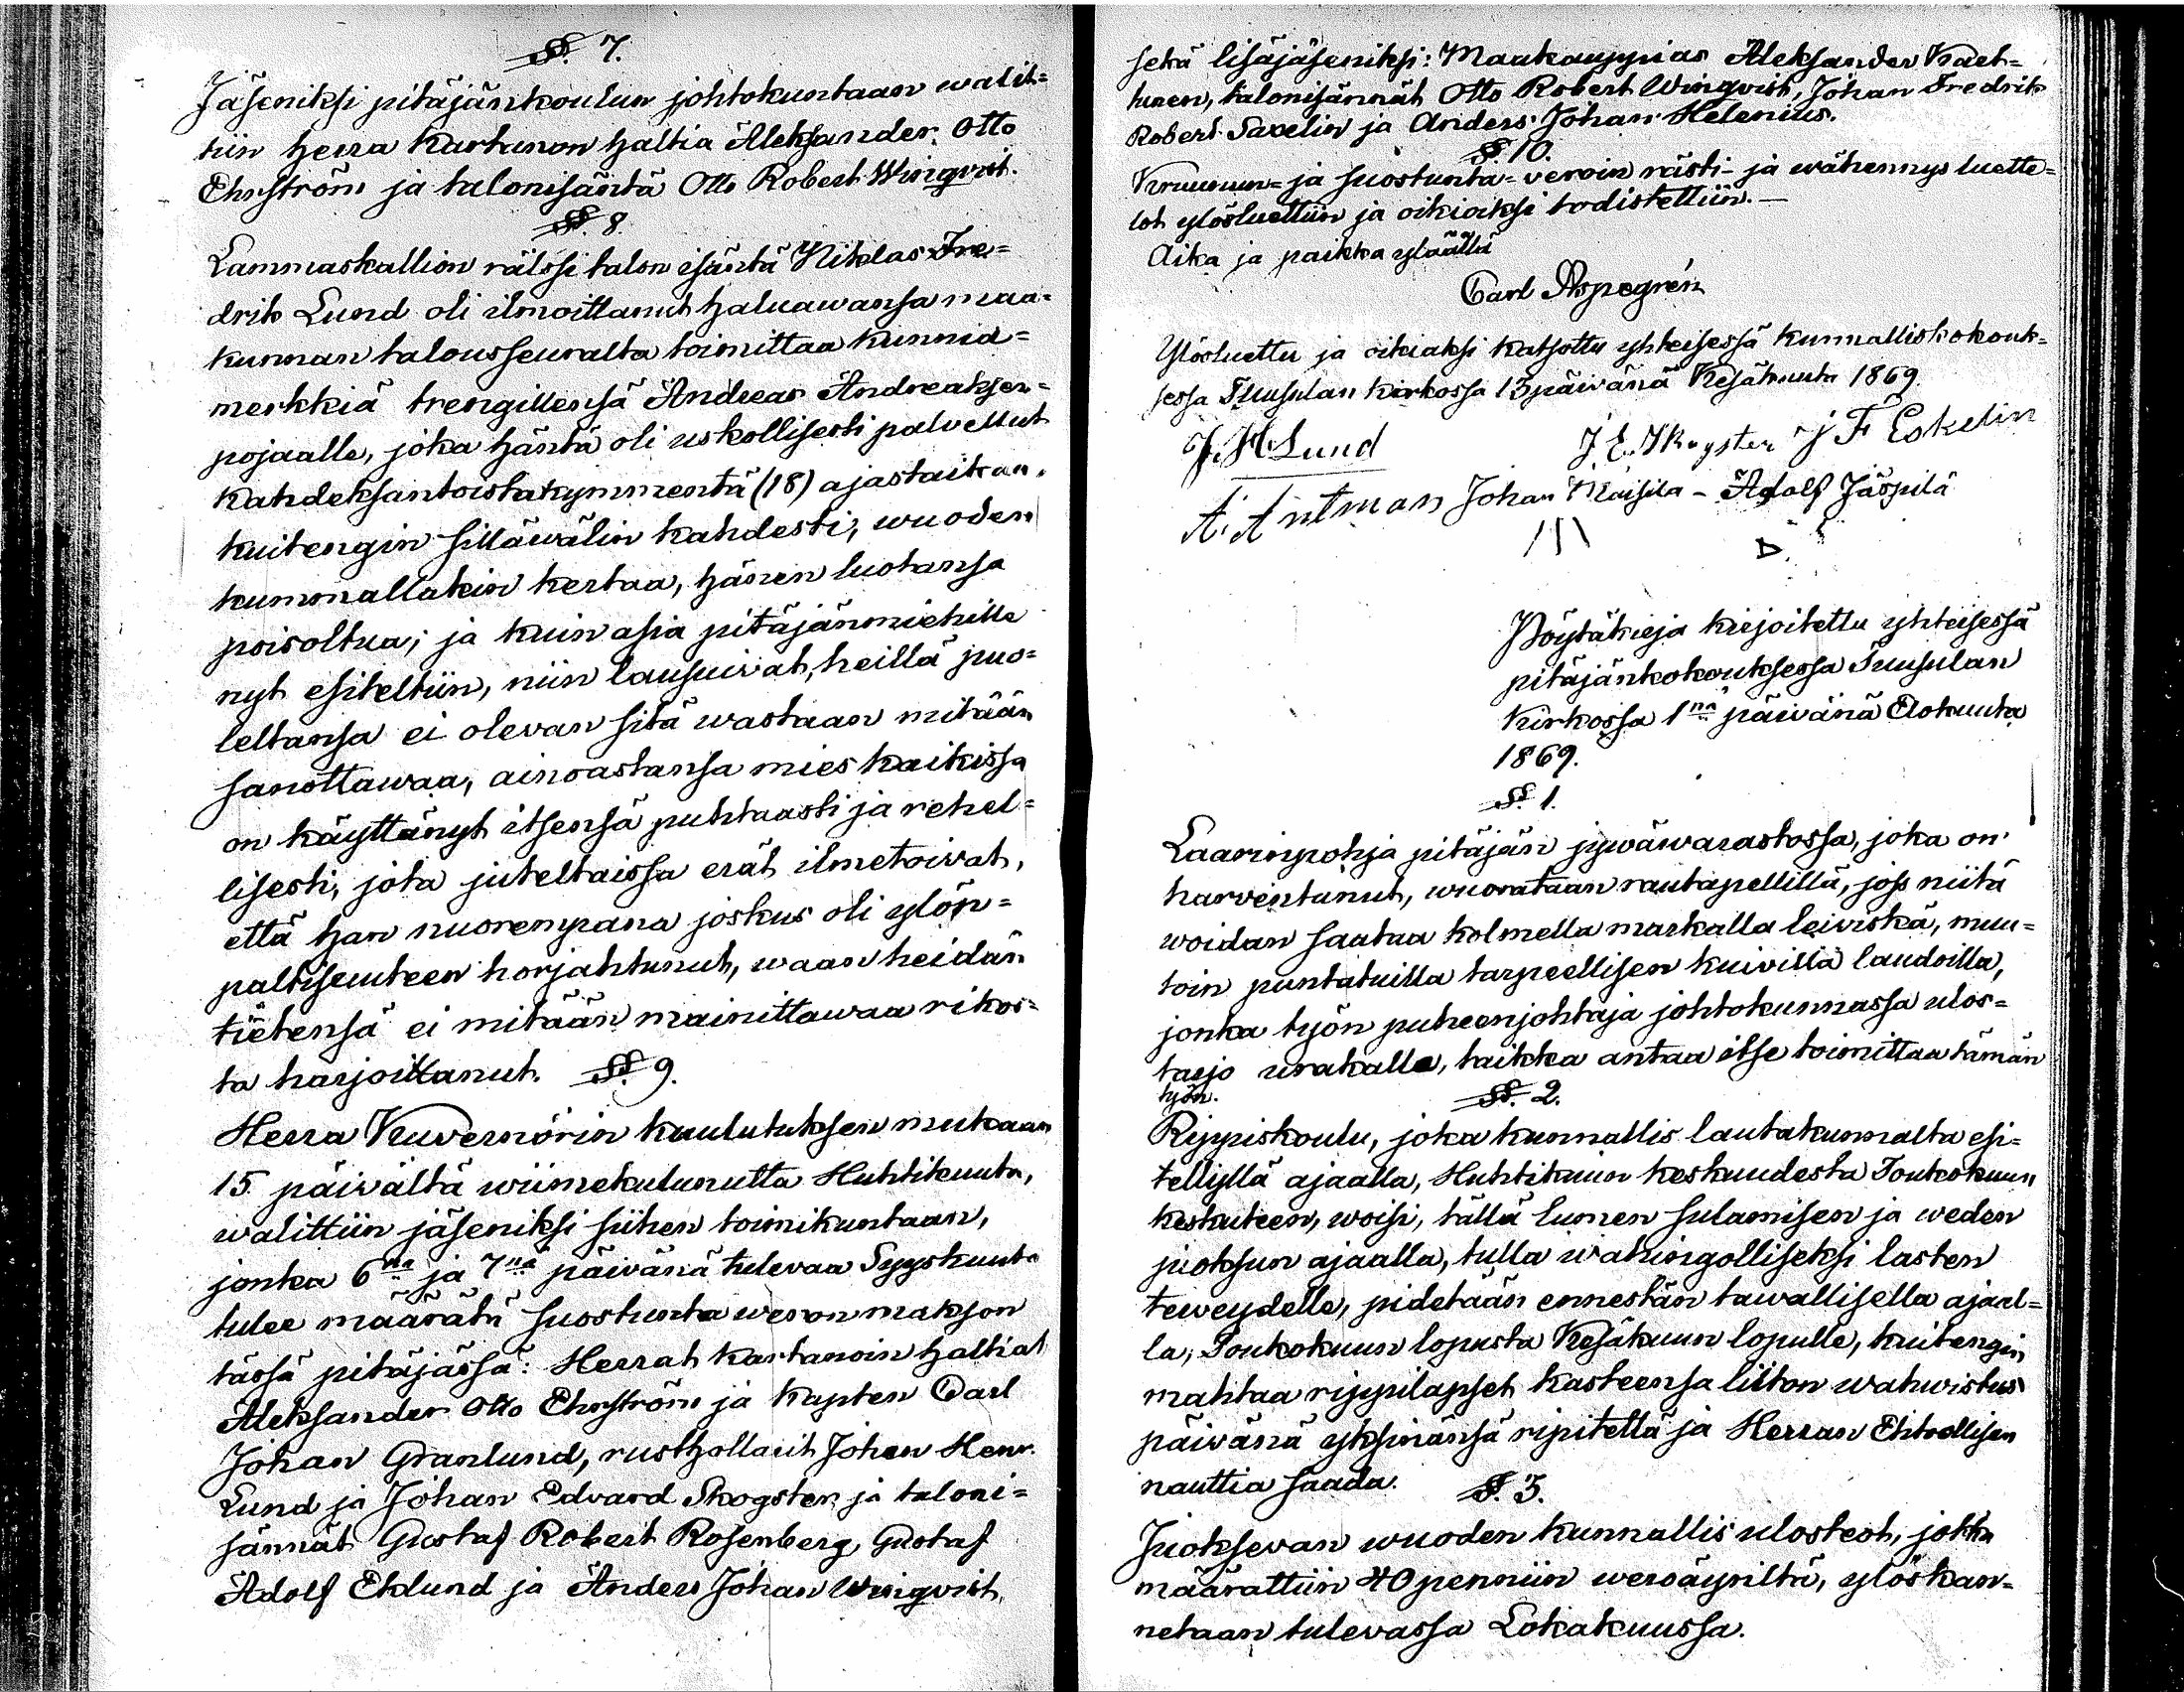 §. 7.
Jäseniksi pitäjänkoulun johtokuntaan walit=
tiin herra Kartanon haltia Aleksander Otto
Ehrström ja talonisäntä Otto Robert Wingvist.
§. 8.
Lammaskallion rälssi talon isäntä Niklas Fre=
drik Lund oli ilmoittanut haluawansa maa=
kunnan talousseuralta toimittaa kunnia=
merkkiä trengillensä Andreas Andreaksen=
pojaalle, joka häntä oli uskollisesti palvellut
Kahdeksantoistakymmentä (18) ajastaikaa,
kuitengin sillävälin kahdesti, wuoden
kummallakin kertaa, hänen luotansa
poisoltua; ja kuin asia pitäjänmiehille
nyt esiteltiin, niin lausuivat, heillä puo=
leltansa ei olevan sitä wastaan mitään
sanottawaa, ainoastansa mies kaikissa
on käyttänyt itsensä puhtaasti ja rehel=
lisesti, jota juteltaissa erät ilmetoivat,
että han nuorempana joskus oli ylön=
paltisuuteen horjahtunut, waan heidän
tietensä ei mitään mainittawaa rikos=
ta harjoittanut. §. 9.
Herra Kuvernörin kuulutuksen mukaan
15 päivältä wiimekulunutta Huhtikuuta,
walittiin jäseniksi siihen toimikuntaan,
jonka 6na ja 7nä päivänä tulevaa Syyskuuta
tulee määrätä suostunta weron makson
tässä pitäjässä: Herrat kartanoin haltiat
Aleksander Otto Ehrström ja Kapten Carl
Johan Granlund, rusthollarit Johan Henr.
Lund ja Johan Edvard Skogster ja taloni=
sännät Gustaf Robert Rosenberg, Gustaf
Adolf Eklund ja Anders Johan Wingvist,
sekä lisäjäseniksi: Maakauppias Aleksander Kaet=
tunen, talonisännät Otto Robert Wingvist, Johan Fredrik
Robert Saxelin ja Anders Johan Helenius.
§. 10.
Kruunun= ja suostunta=veroin rästi- ja wähennys luette=
lot ylösluettiin ja oikiaksi todistettiin. —
Aika ja paikka ylaällä
Carl Aspegrén
Ylösluettu ja oikiaksi katsottu yhteisessä kunnalliskokouk=
sessa Tuusulan kirkossa 13 päivänä Kesäkuuta 1869.
J. H. Lund J. E. Skogster J F Eskelin
A. Antman Johan Klaisila - Adolf Jäspilä
Pöytäkirja kirjoitettu yhteisessä
pitäjänkokouksessa Tuusulan
Kirkossa 1nä päivänä Elokuuta
1869.
§. 1.
Laarinpohja pitäjän jywäwarastossa, joka on
harventunut, wuorataan rautapellillä, jos niitä
woidan saataa kolmella markalla leiviskä, muu=
toin puntatuilla tarpeellisen kuivilla laudoilla,
jonka työn puheenjohtaja johtokunnassa ulos=
tarjo urakalle, taikka antaa itse toimittaa tämän
työn. §. 2.
Rippiskoulu, joka kunnallis lautakunnalta esi=
tellyllä ajaalla, Huhtikuun keskuudesta Toukokuun
keskuteen, woisi, tällä lumen sulamisen ja weden
juoksun ajaalla, tulla wahingolliseksi lasten
terveydelle, pidetään ennestän tawallisella ajaal=
la, Toukokuun lopusta Kesäkuun lopulle, kuitengin
mahtaa rippilapset kasteensa liiton wahwistus
päivänä yksinänsä ripitettä ja Herran Ehtoollisen
nauttia saada. §. 3.
Juoksevan wuoden kunnallis ulosteot, jotka
määrättiin 40 penniin weroäyriltä, ylöskan=
netaan tulevassa Lokakuussa.